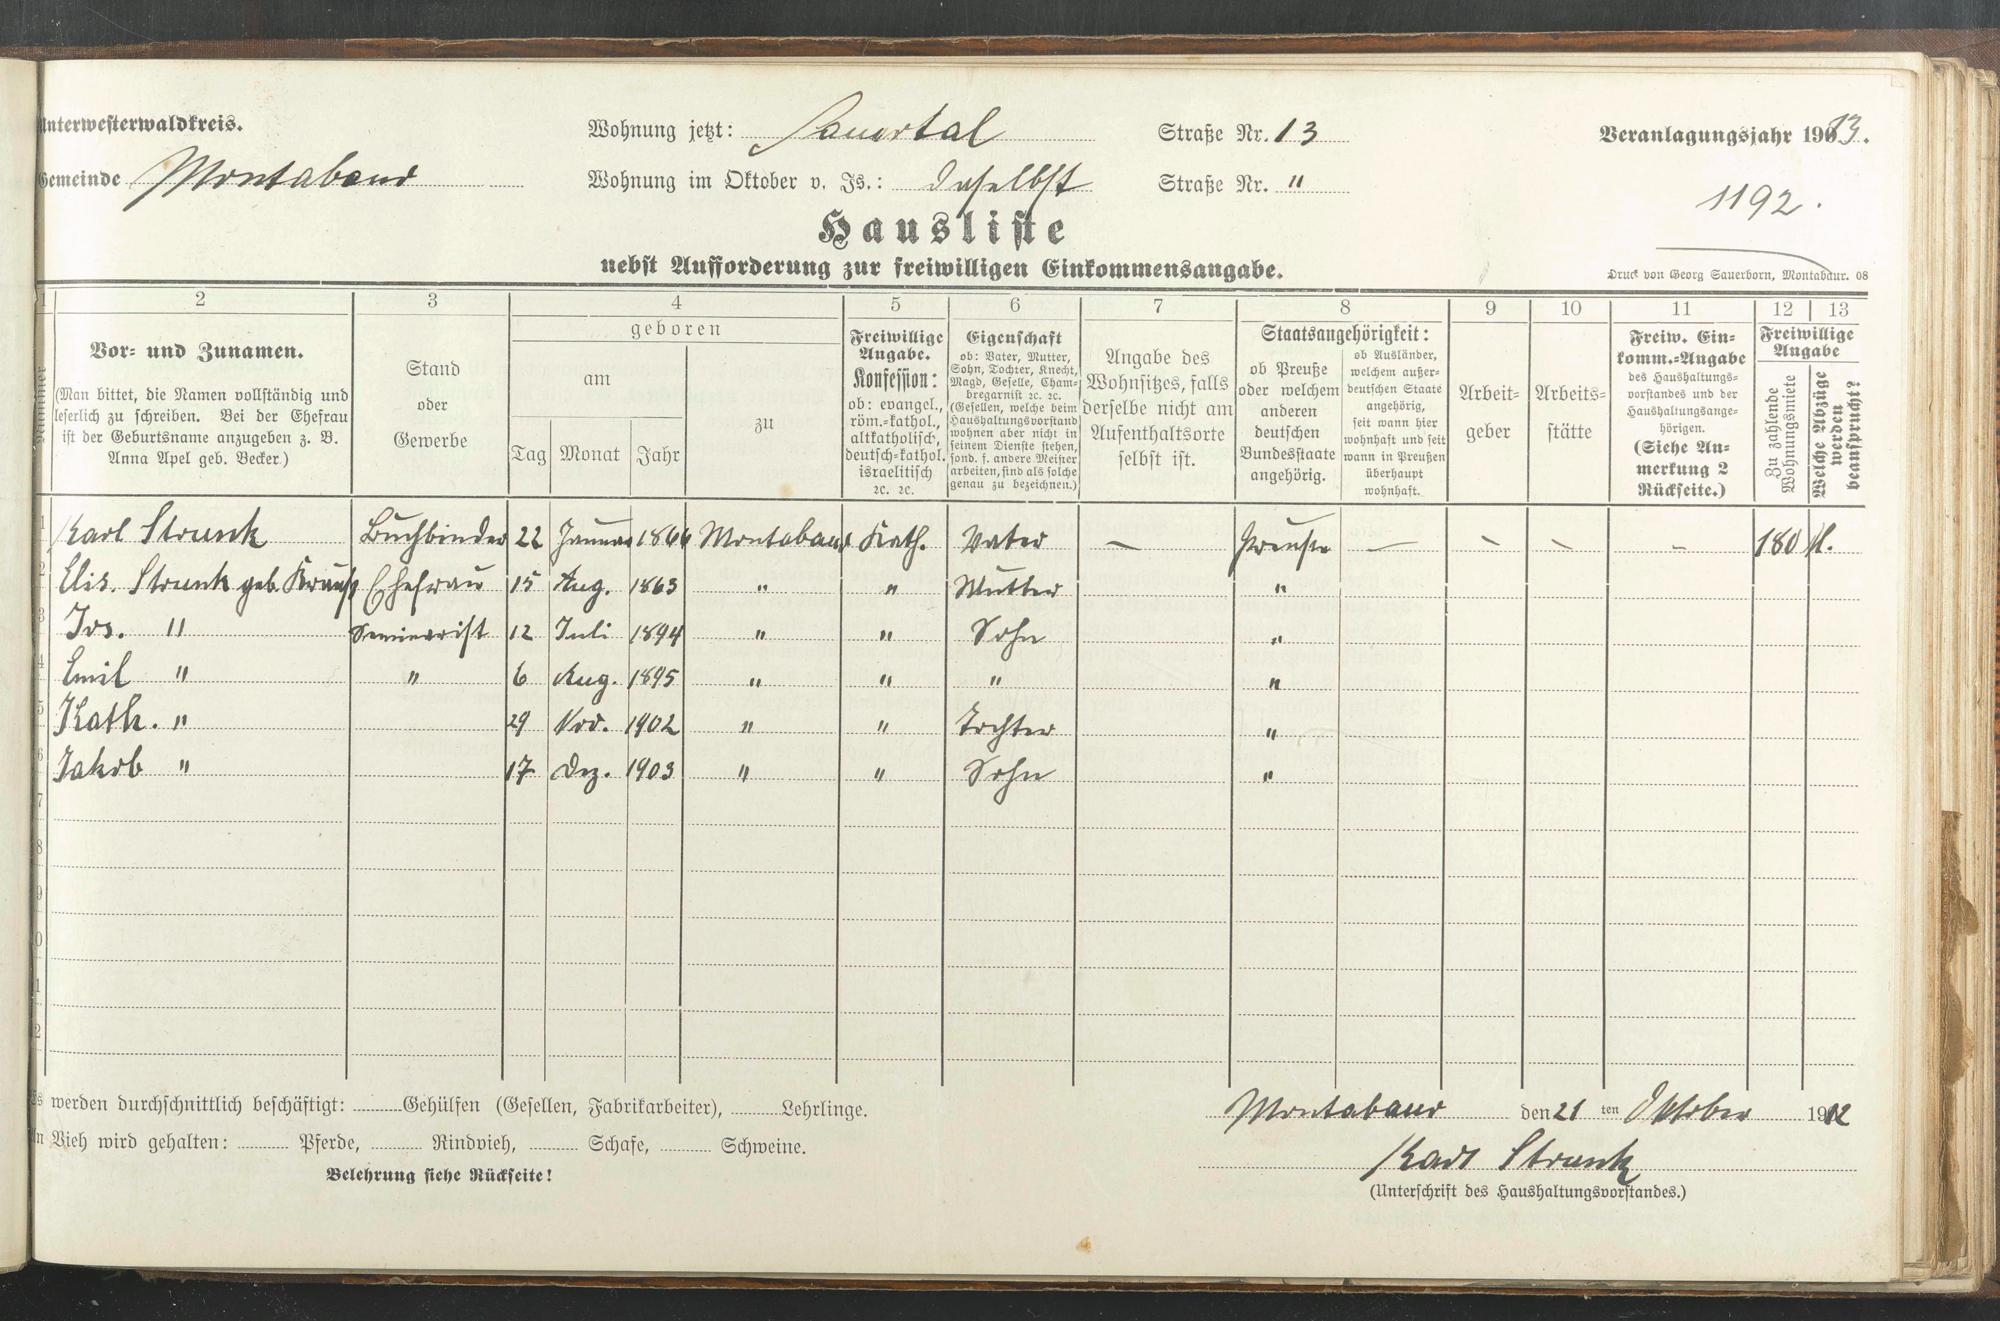 Unterwesterwaldkreis.
Wohnung jetzt: Sauertal Straße Nr. 13
Veranlagungsjahr 1913.
Gemeinde Montabaur
Wohnung im Oktober v. Js.: daselbst Straße Nr. "
1192.
Hausliste
nebst Aufforderung zur freiwilligen Einkommensangabe.
Druck von Georg Sauerborn, Montabaur. 08
1 2 3 4 5 6 7 8 9 10 11 12 13
Nummer
Vor- und Zunamen.
(Man bittet, die Namen vollständig und
leserlich zu schreiben. Bei der Ehefrau
ist der Geburtsname anzugeben z. B.
Anna Apel geb. Becker.)
Stand
oder
Gewerbe
geboren
am
Tag Monat Jahr
zu
Freiwillige
Angabe.
Konfession:
ob: evangel.,
röm.-kathol.,
altkatholisch,
deutsch-kathol.
israelitisch
ꝛc. ꝛc.
Eigenschaft
ob: Vater, Mutter,
Sohn, Tochter, Knecht,
Magd, Geselle, Cham-
bregarnist ꝛc. ꝛc.
(Gesellen, welche beim
Haushaltungsvorstand
wohnen aber nicht in
seinem Dienste stehen,
sond. f. andere Meister
arbeiten, sind als solche
genau zu bezeichnen.)
Angabe des
Wohnsitzes, falls
derselbe nicht am
Aufenthaltsorte
selbst ist.
Staatsangehörigkeit:
ob Preuße
oder welchem
anderen
deutschen
Bundesstaate
angehörig.
ob Ausländer,
welchem außer-
deutschen Staate
angehörig,
seit wann hier
wohnhaft und seit
wann in Preußen
überhaupt
wohnhaft.
Arbeit-
geber
Arbeits-
stätte
Freiw. Ein-
komm.-Angabe
des Haushaltungs-
vorstandes und der
Haushaltungsange-
hörigen.
(Siehe An-
merkung 2
Rückseite.)
Freiwillige
Angabe
Zu zahlende
Wohnungsmiete
Welche Abzüge
werden
beansprucht?
1 Karl Strunk Buchbinder 22 Januar 1866 Montabaur Kath. Vater — Preuße — — — — 180 M.
2 Elis. Strunk geb. Krauß Ehefrau 15 Aug. 1863 " " Mutter "
3 Jos. " Seminarist 12 Juli 1894 " " Sohn "
4 Emil " " 6 Aug. 1895 " " " "
5 Kath. " 29 Nov. 1902 " " Tochter "
6 Jakob " 17 Dez. 1903 " " Sohn "
7
8
9
0
1
2
Es werden durchschnittlich beschäftigt: Gehülfen (Gesellen, Fabrikarbeiter), Lehrlinge.
Montabaur den 21 ten Oktober 1912
An Vieh wird gehalten: Pferde, Rindvieh, Schafe, Schweine.
Karl Strunk
Belehrung siehe Rückseite!
(Unterschrift des Haushaltungsvorstandes.)